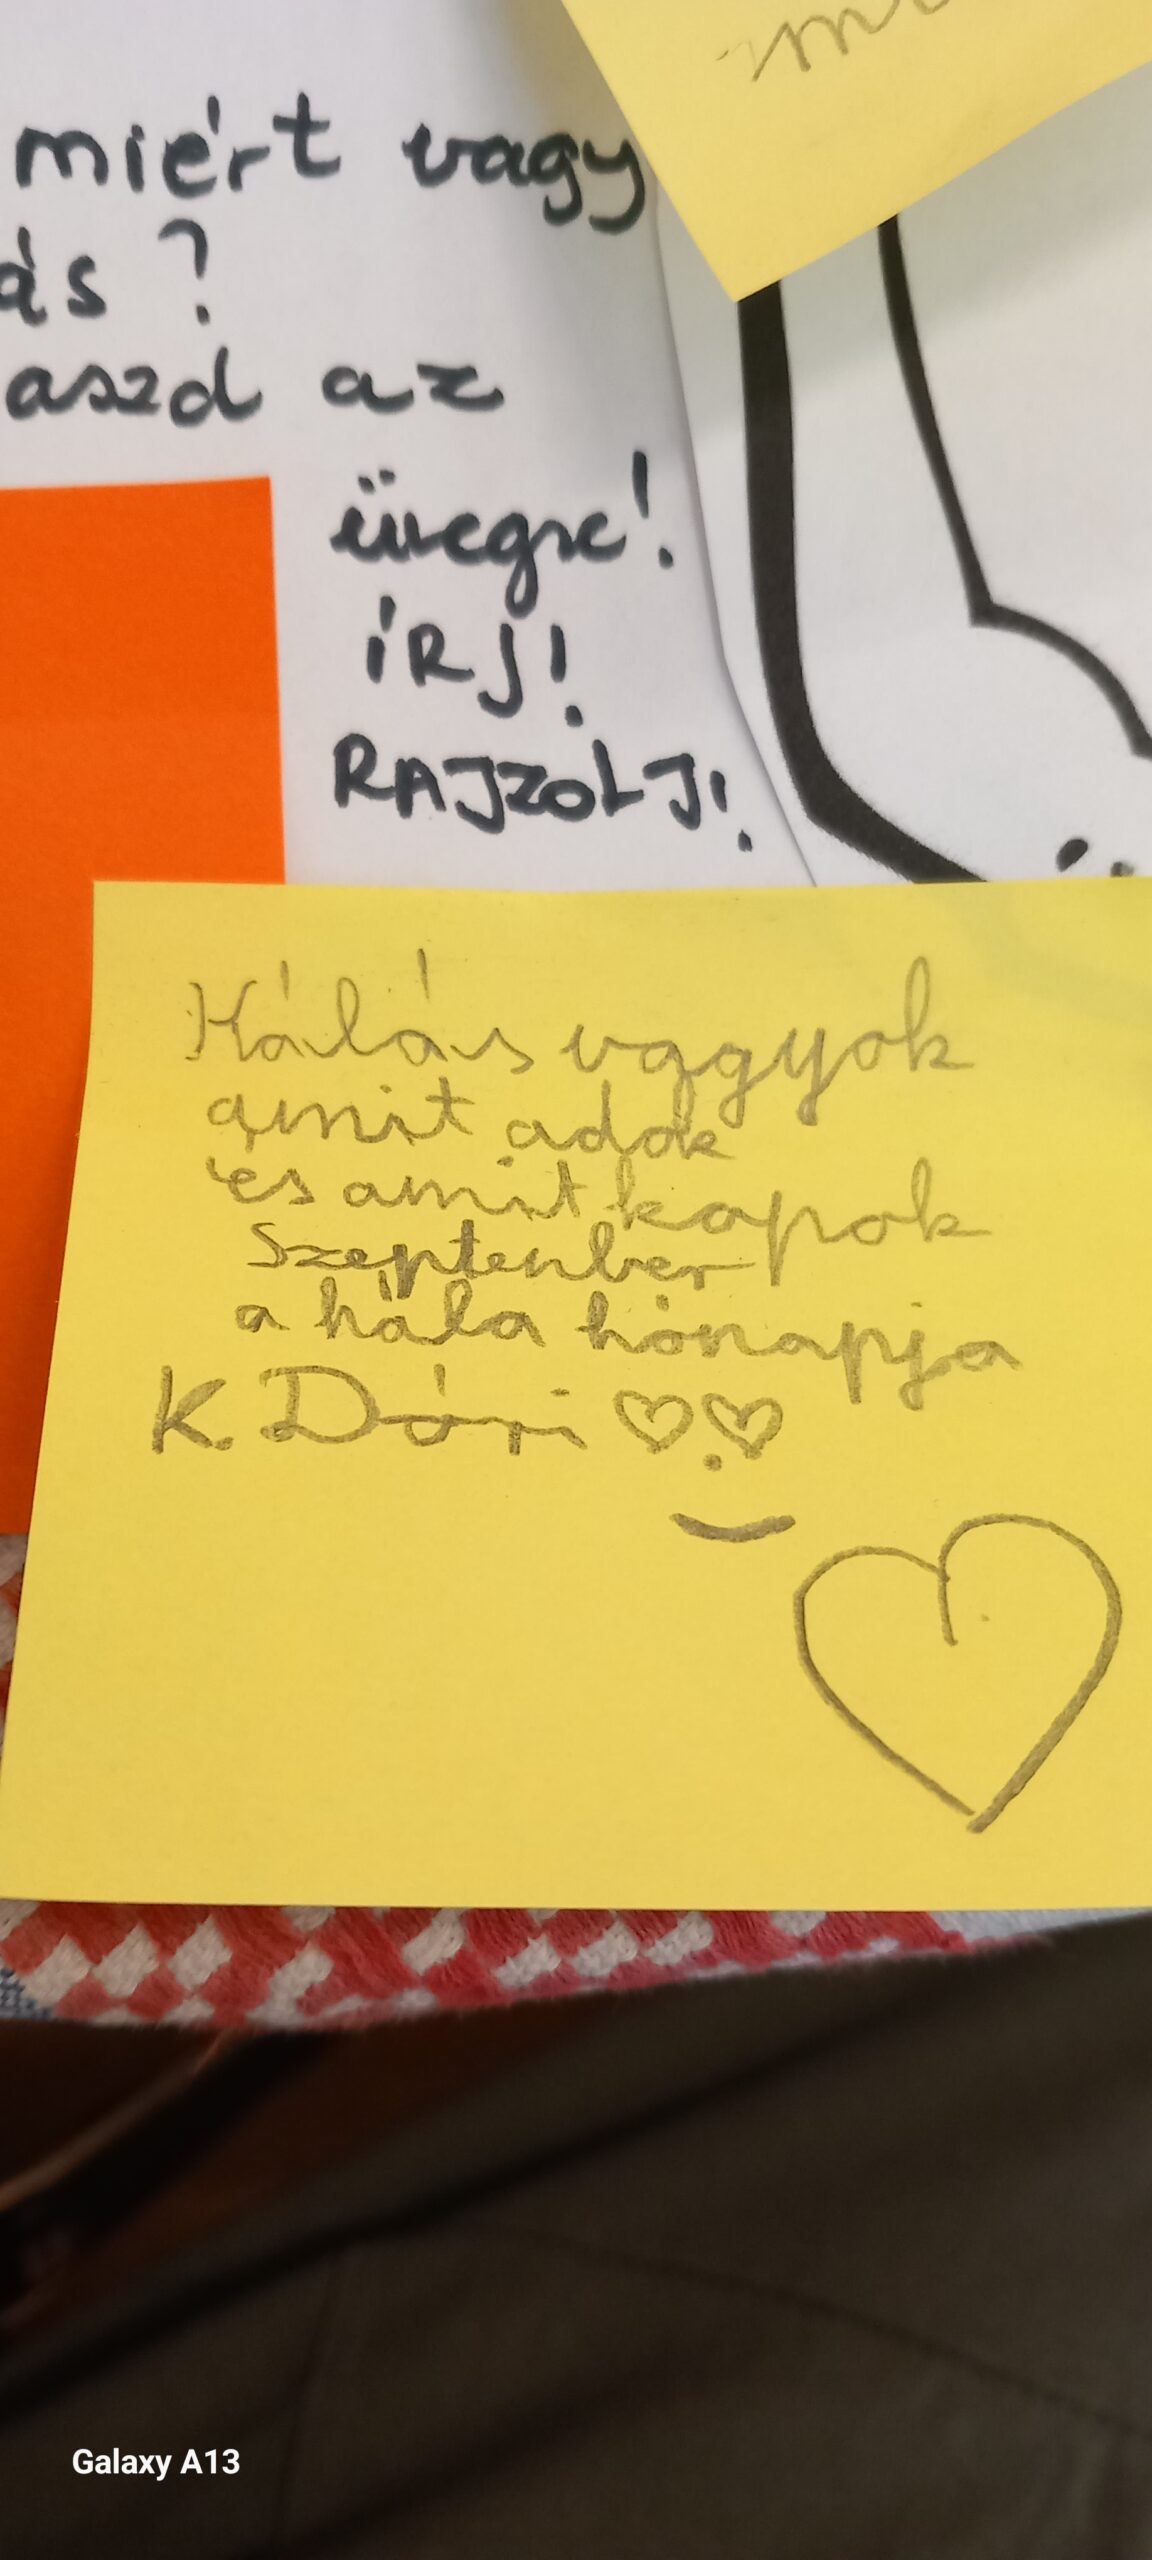 miért vagy
ás ?
aszd az
üvegre!
ÍRJ!
RAJZOLJ!
Hálás vagyok
amit adok
és amit kapok
Szeptenber
a hála hónapja
K. Dóri ♡♡
Galaxy A13